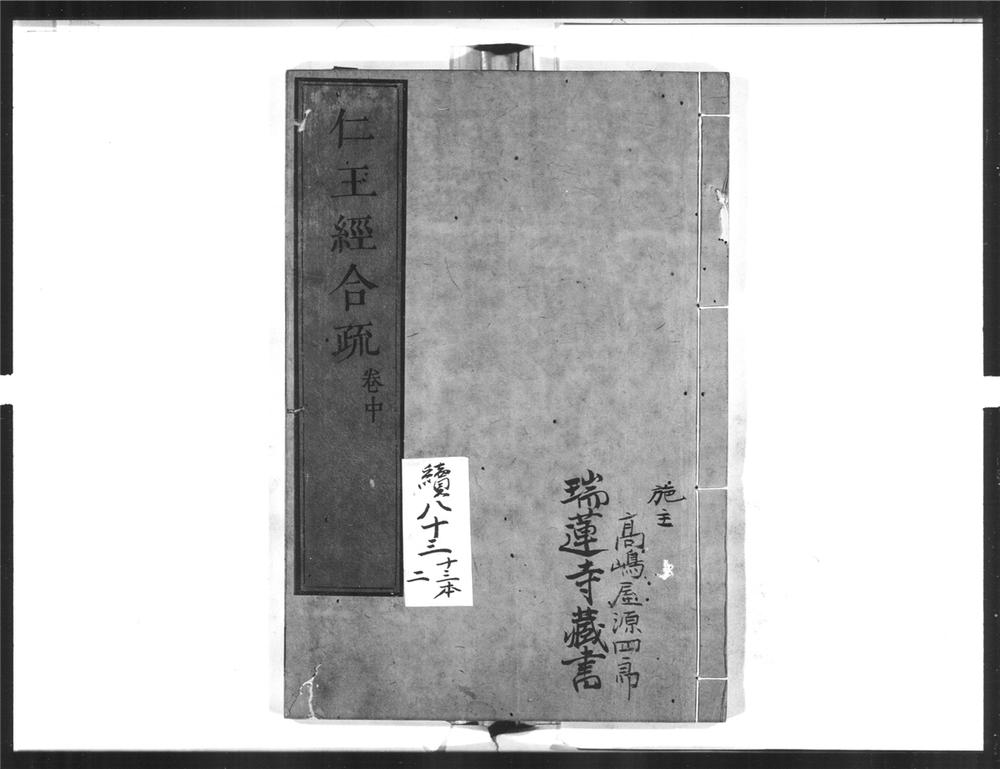 施主
高嶋屋源四郎
瑞蓮寺藏書
續八十三
十三本
二
仁王經合疏
卷中